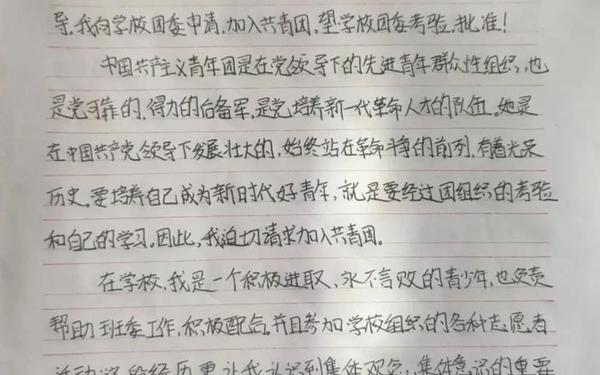 导。我向学校团委申请,加入共青团,望学校团委考验。批准!
中国共产主义青年团是在党领导下的先进青年群众性组织,也
是党可靠的、得力的后备军,是党培养新一代革命人才的队伍。她是
在中国共产党领导下发展壮大的,始终站在革命斗争的前列,有着光荣
历史。要培养自己成为新时代好青年,就是要经过团组织的考验
和自己的学习。因此,我迫切请求加入共青团。
在学校,我是一个积极进取、永不言败的青少年,也负责
帮助班委工作,积极配合。并且参加学校组织的各种志愿者
活动这段经历更让我认识到集体观念,集体意识的重要